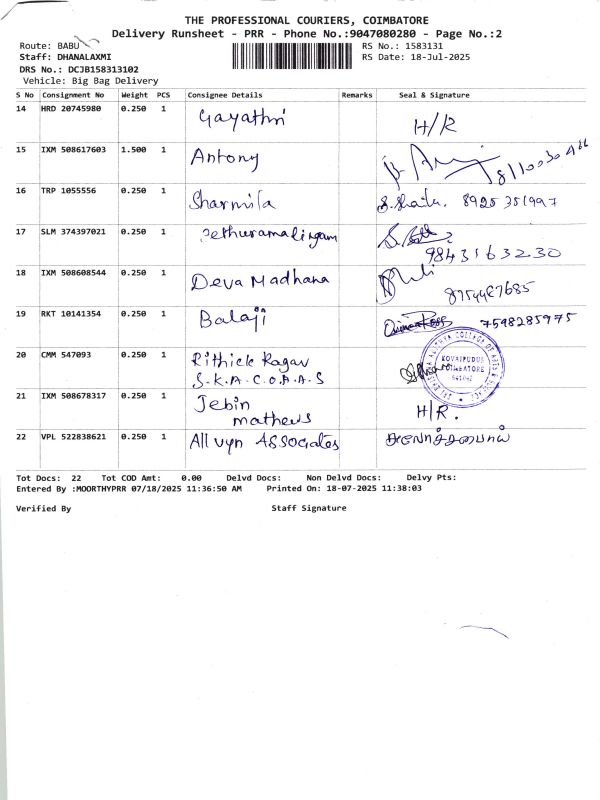 THE PROFESSIONAL COURIERS, COIMBATORE
Delivery Runsheet - PRR - Phone No.:9047080280 - Page No.:2
Route: BABU
RS No.: 1583131
Staff: DHANALAXMI
RS Date: 18-Jul-2025
DRS No.: DCJB158313102
Vehicle: Big Bag Delivery
S No Consignment No Weight PCS Consignee Details Remarks Seal & Signature
14 HRD 20745980 0.250 1 Gayathri H/R
15 IXM 508617603 1.500 1 Antony
16 TRP 1055556 0.250 1 Sharmila 8925351997
17 SLM 374397021 0.250 1 Sethuramalingam 9843163230
18 IXM 508608544 0.250 1 Deva Madhana 8754487685
19 RKT 10141354 0.250 1 Balaji 7598285975
20 CMM 547093 0.250 1 Rithick Ragav
S.K.A.C.O.A.A.S
KOVAIPUDUR
COIMBATORE
641042
21 IXM 508678317 0.250 1 Jebin
mathews H/R.
22 VPL 522838621 0.250 1 Allvyn ASSOCiates
Tot Docs: 22 Tot COD Amt: 0.00 Delvd Docs: Non Delvd Docs: Delvy Pts:
Entered By :MOORTHYPRR 07/18/2025 11:36:50 AM Printed On: 18-07-2025 11:38:03
Verified By Staff Signature